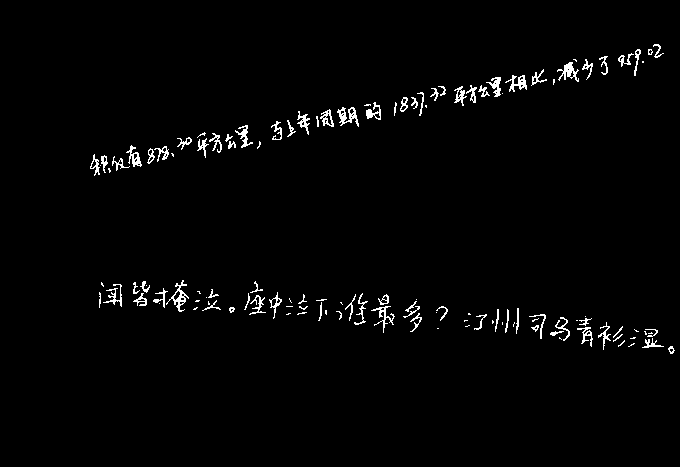 积仅有878.30平方公里，与上年同期的1837.32平方公里相比，减少了959.02
闻皆掩泣。座中泣下谁最多？江州司马青衫湿。